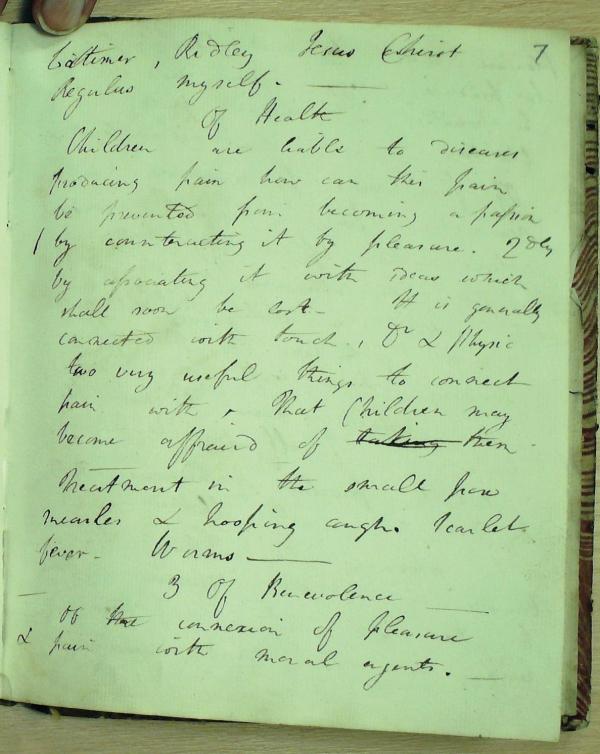 7
Latimer, Ridley Jesus Christ
Regulus myself. —
Of Health
Children are liable to diseases
producing pain how can this pain
be prevented from becoming a passion
1 by counteracting it by pleasure. 2dly
by associating it with ideas which
shall soon be lost - It is generally
connected with touch, Dr & Physic
two very useful things to connect
pain with, That Children may
become affraid of taking them.
Treatment in the small pox
measles & hooping cough. Scarlet
fever - Worms —
3 Of Benevolence
Of the connexion of pleasure
& pain with moral agents. —